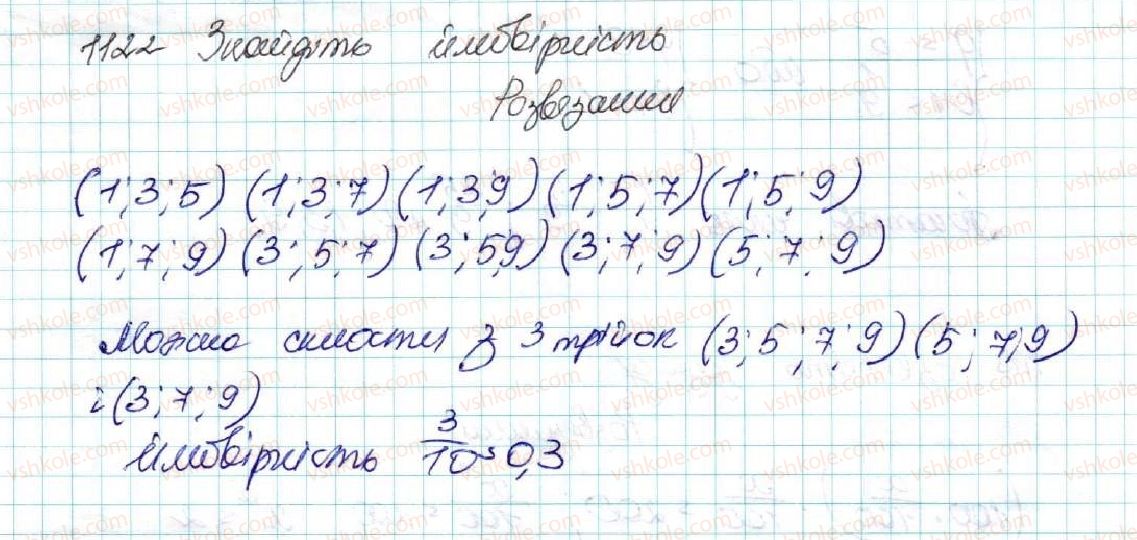 1122 Знайдіть ймовірність
Розв'язання
(1;3;5) (1;3;7) (1;3;9) (1;5;7) (1;5;9)
(1;7;9) (3;5;7) (3;5;9) (3;7;9) (5;7;9)
Можна скласти з 3 трійок (3;5;7;9) (5;7;9)
і (3;7;9)
ймовірність 3/10 = 0,3